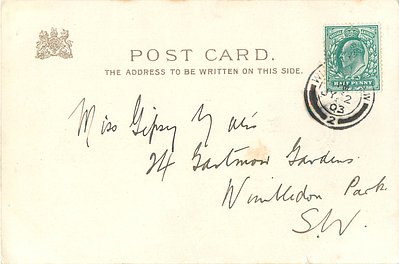 POST CARD.
THE ADDRESS TO BE WRITTEN ON THIS SIDE.
HALF PENNY
03
2
Miss Gipsy
24 Gartmoor Gardens.
Wimbledon Park
S.W.